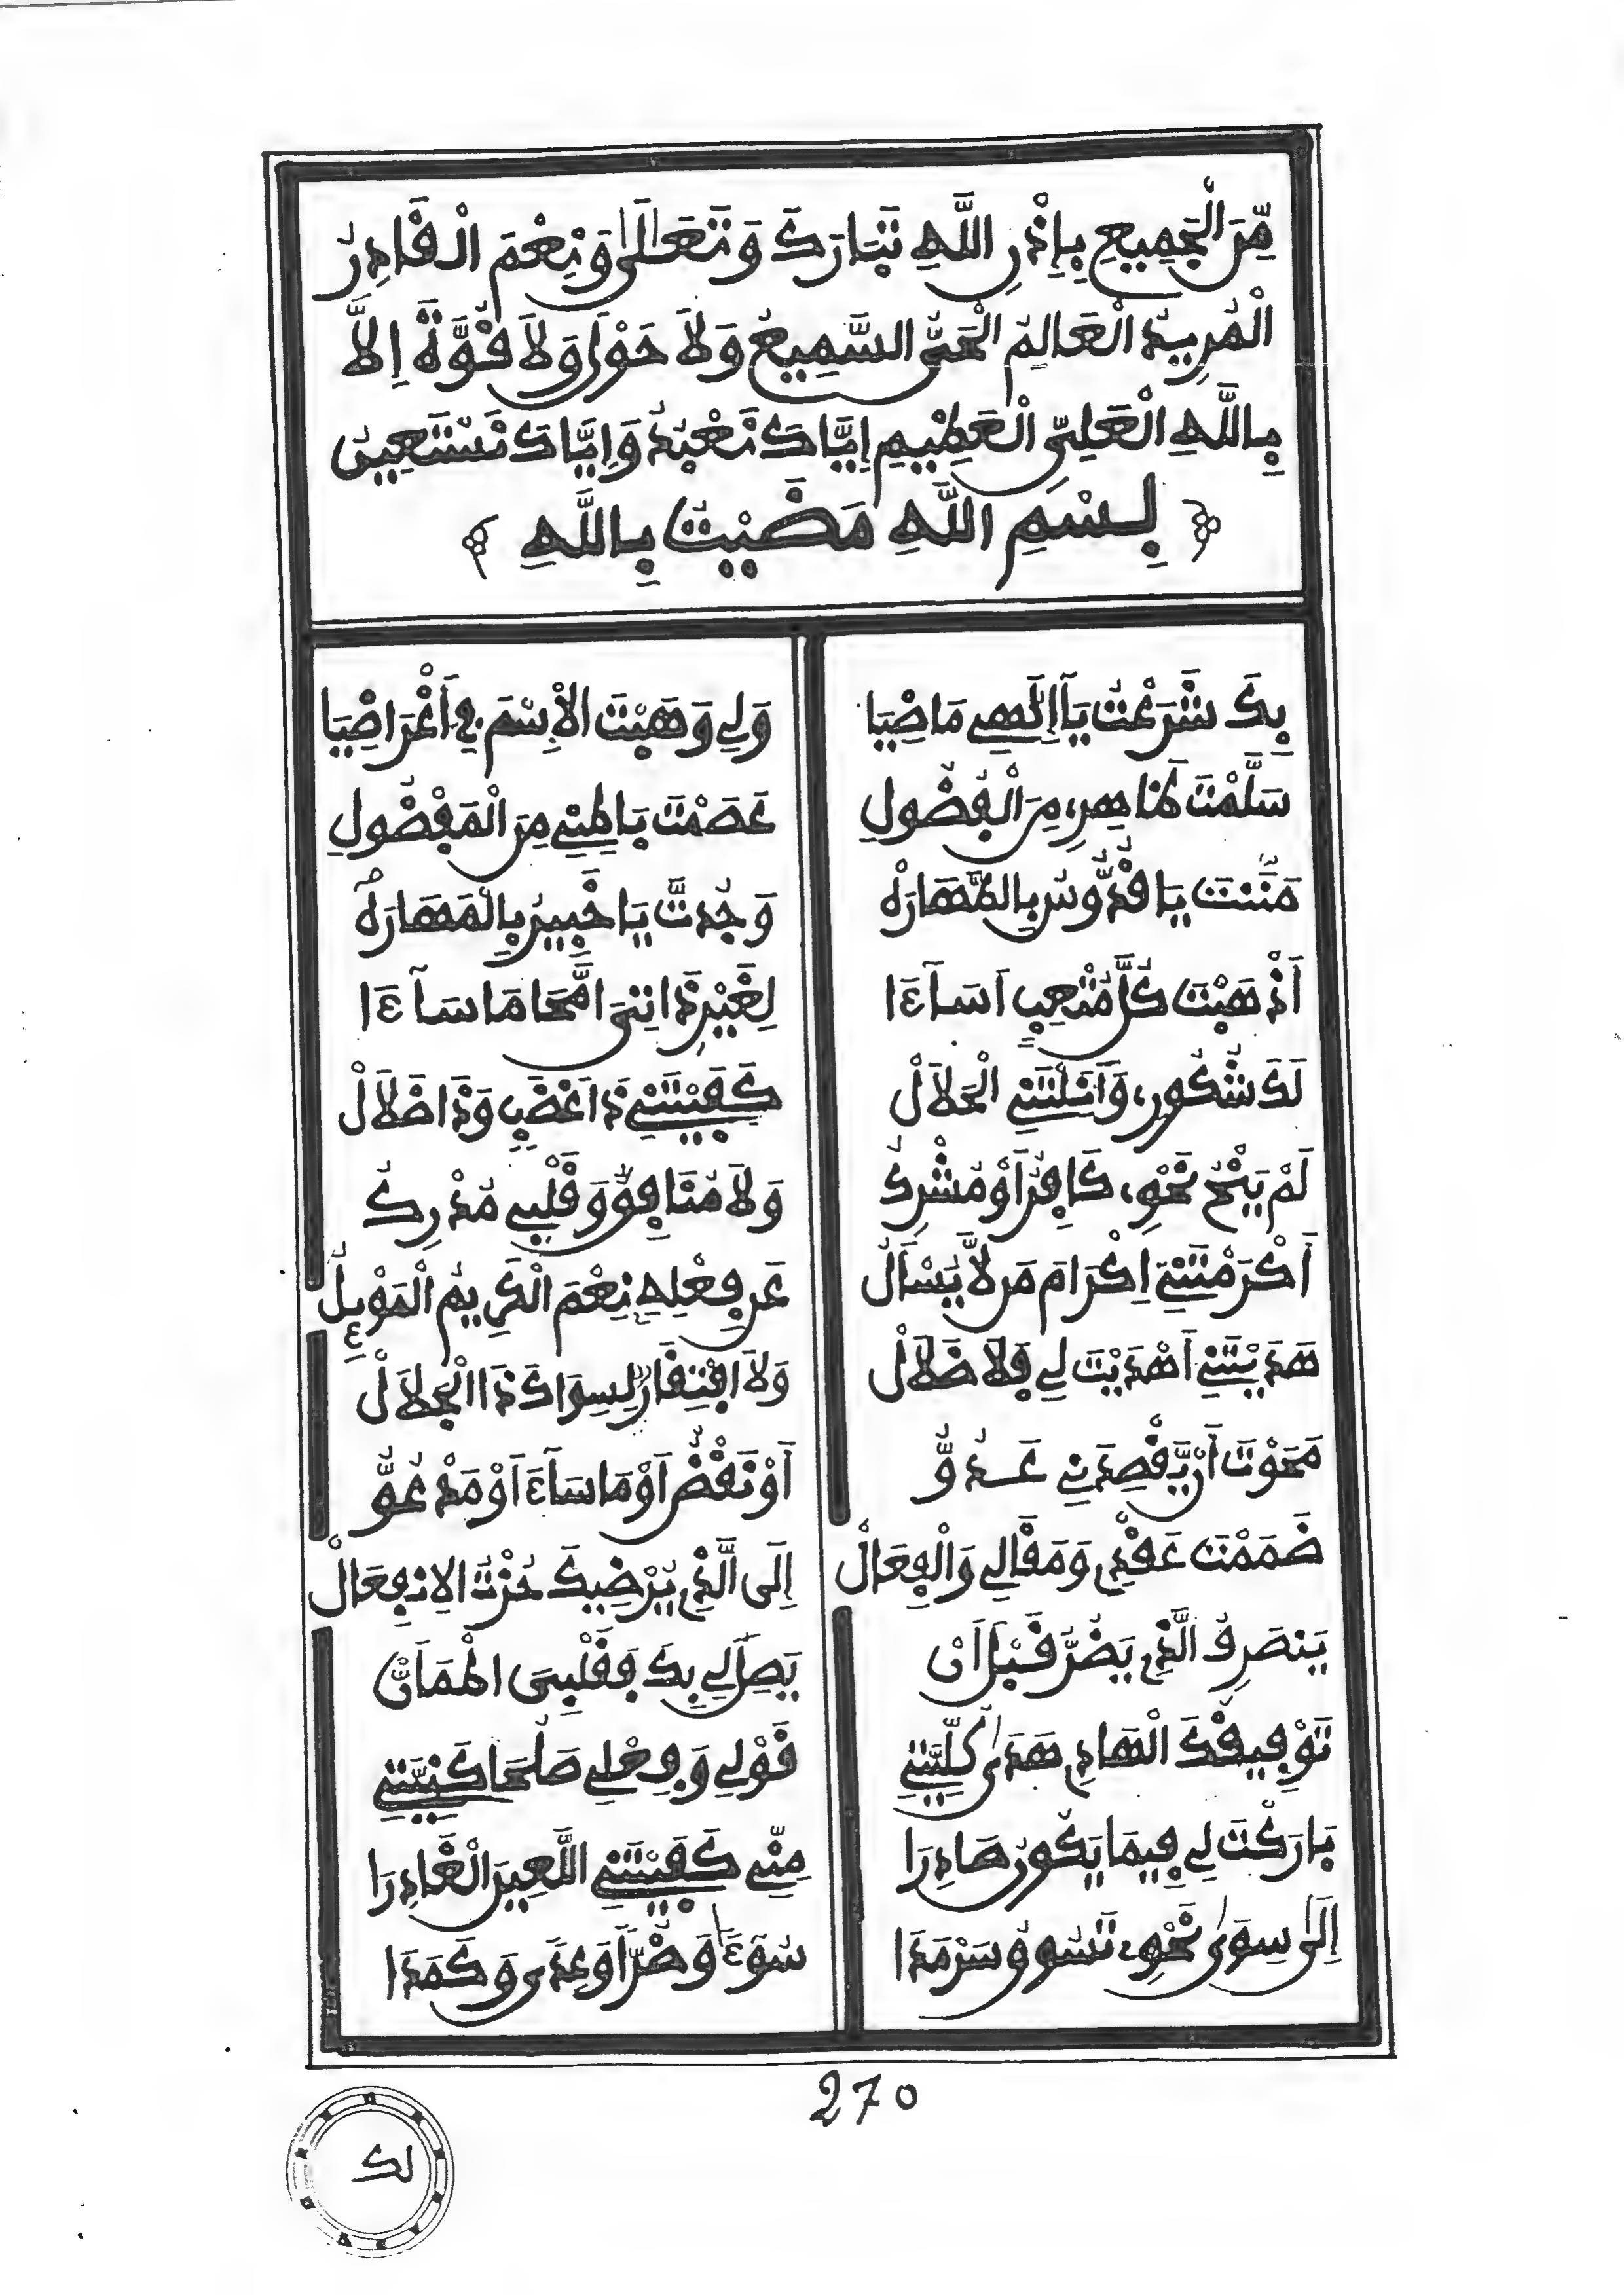 مِّنَ الْجَمِيعِ بِإِذْنِ اللَّهِ تَبَارَكَ وَتَعَالَى وَنِعْمَ الْقَادِرُ
الْمُرِيدُ الْعَالِمُ الْحَىُّ السَّمِيعُ وَلاَ حَوْلَ وَلاَ قُوَّةَ إِلاَّ
بِاللَّهِ الْعَلِىِّ الْعَظِيمِ إِيَّاكَ نَعْبُدُ وَإِيَّاكَ نَسْتَعِينُ
بِسْمِ اللَّهِ مَضَيْتُ بِاللَّهِ
بِكَ شَرَعْتُ يَآ إِلَٰهِى مَاضِيَا وَلِى وَهَبْتَ الاِسْمَ فِى أَغْرَاضِيَا
سَلَّمْتَ ظَاهِرِى مِنَ الْفُضُولِ عَصَمْتَ بَاطِنِى مِنَ الْمَفْضُولِ
مَنَنْتَ يَا قُدُّوسُ بِالطَّهَارَهْ وَجُدتَّ يَا خَبِيرُ بِالْمَهَارَهْ
أَذْهَبْتَ كُلَّ مُتْعِبٍ أَسَآءَا لِغَيْرِ ذَاتِىَ امَّحَا مَا سَآءَا
لَكَ شُكُورِى وَأَنَلْتَنِى الْحَلاَلْ كَفَيْتَنِى ذَا غَضَبٍ وَذَا ضَلاَلْ
لَمْ يَنْحُ نَحْوِى كَافِرٌ أَوْ مُشْرِكُ وَلاَ مُنَافِقٌ وَقَلْبِى مُدْرِكُ
أَكْرَمْتَنِى إِكْرَامَ مَن لاَّ يُسْأَلُ عَن فِعْلِهِ نِعْمَ الْكَرِيمُ الْمَوْئِلُ
هَدَيْتَنِى أَهْدَيْتَ لِى فَلاَ ضَلاَلْ وَلاَ افْتِقَارٌ لِسِوَاكَ ذَا الْجَلاَلْ
مَحَوْتَ أَن يَّقْصِدَنِى عَدُوُّ أَوْ نَقْضٌ أَوْ مَا سَآءَ أَوْ مَدْعُوُّ
ضَمَمْتَ عَقْدِى وَمَقَالِى وَالْفِعَالْ إِلَى الَّذِى يُرْضِيكَ حُزْتُ الاِنْفِعَالْ
يَنصَرِفُ الَّذِى يَضُرُّ قَبْلَ أَنْ يَصِلَ لِى بِكَ فَقَلْبِىَ اطْمَأَنّْ
تَوْفِيقُكَ الْهَادِى هَدَى كُلِّيَّتِى قَوْلِى وَفِعْلِى صَلُحَا كَنِيَّتِى
بَارَكْتَ لِى فِيمَا يَكُونُ صَادِرَا مِنِّى كَفَيْتَنِى اللَّعِينَ الْغَادِرَا
إِلَى سِوَى نَحْوِى تَسُوقُ سَرْمَدَا سُوٓءًا وَضُرًّا وَعِدًى وَكَمَدَا
270
لك